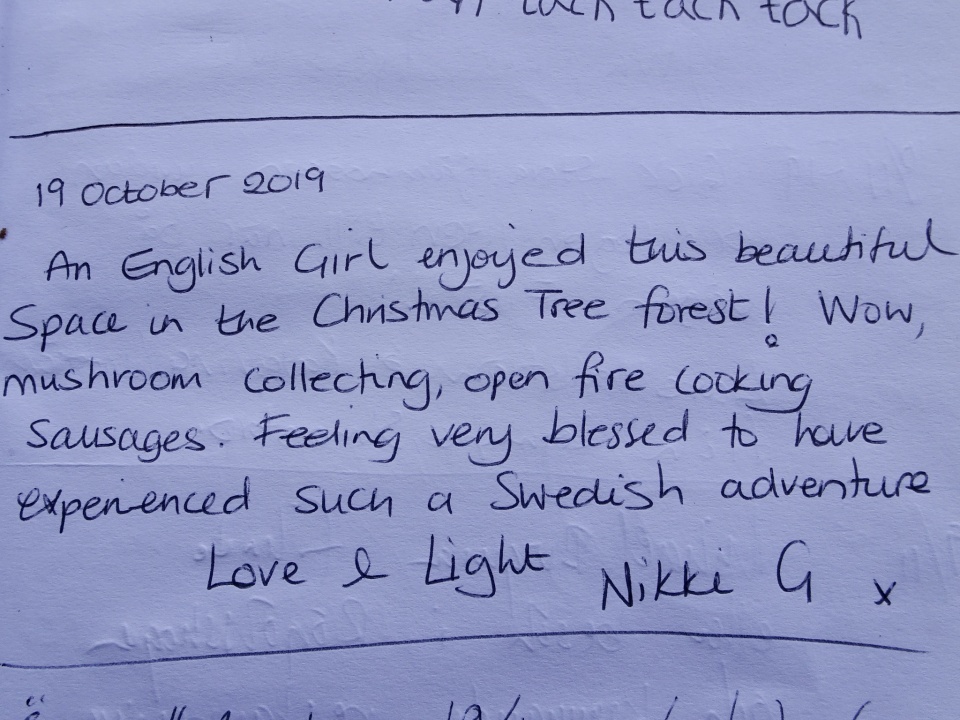 tack tack tack
19 October 2019
An English Girl enjoyed this beautiful
Space in the Christmas Tree forest! Wow,
mushroom collecting, open fire cooking
Sausages. Feeling very blessed to have
experienced such a Swedish adventure
Love & Light Nikki G x